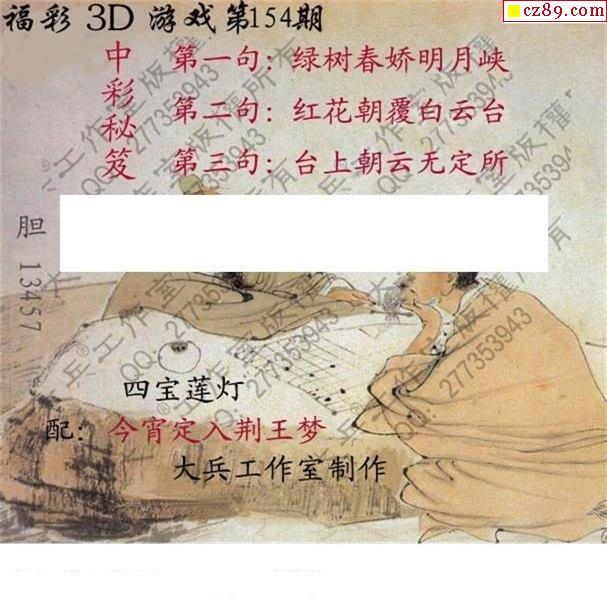 福彩 3D 游戏第154期
cz89.com
中彩秘笈
第一句：绿树春娇明月峡
第二句：红花朝覆白云台
第三句：台上朝云无定所
胆 13457
四宝莲灯
配：今宵定入荆王梦
大兵工作室制作
大兵工作室版权所有
QQ：277353943